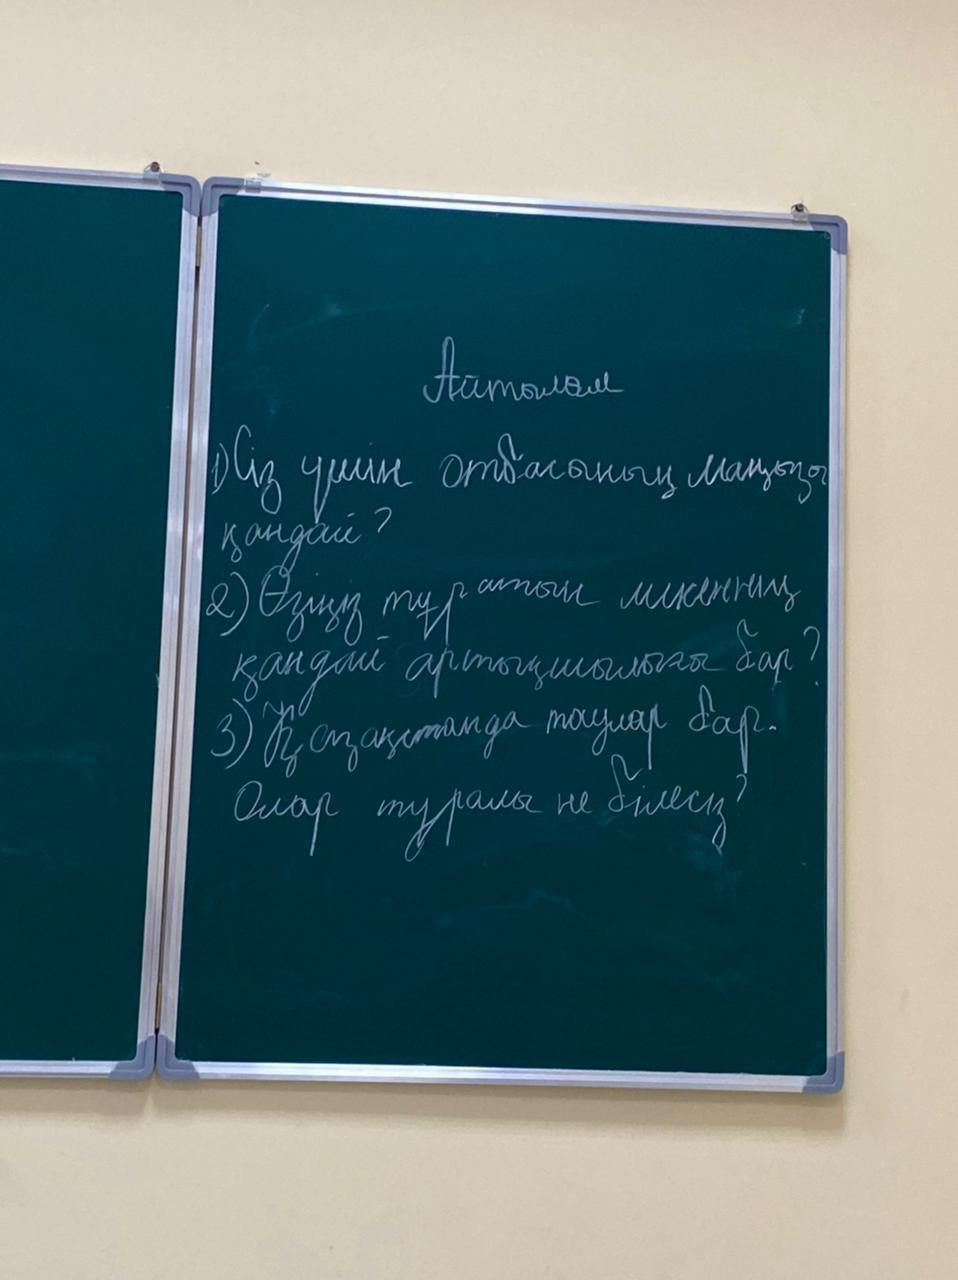 Айтылым
1) Сіз үшін отбасының маңызы
қандай?
2) Өзіңіз тұратын мекеннің
қандай артықшылығы бар?
3) Қазақстанда таулар бар.
Олар туралы не білесіз?